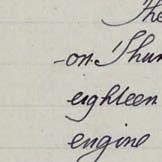 The
on Thur
eighteen
engine